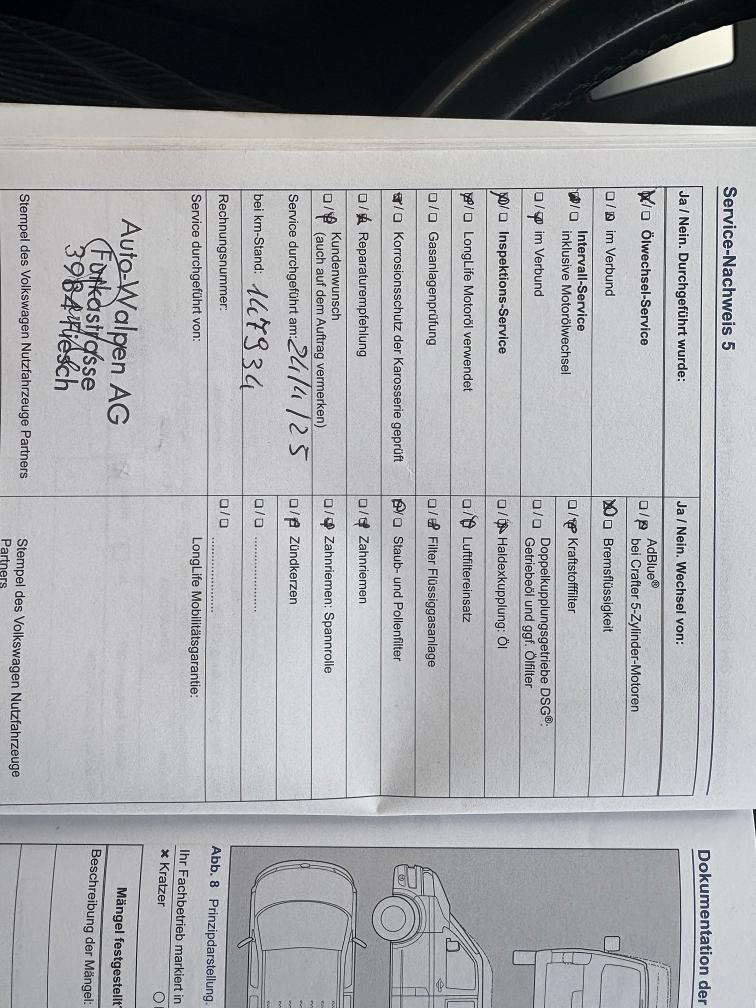 Service-Nachweis 5
Ja / Nein. Durchgeführt wurde:
☒/☐ Ölwechsel-Service
☐/☒ im Verbund
☒/☐ Intervall-Service
inklusive Motorölwechsel
☐/☒ im Verbund
☒/☐ Inspektions-Service
☒/☐ LongLife Motoröl verwendet
☐/☐ Gasanlagenprüfung
☒/☐ Korrosionsschutz der Karosserie geprüft
☐/☒ Reparaturempfehlung
☐/☒ Kundenwunsch
(auch auf dem Auftrag vermerken)
Service durchgeführt am: 24/4/25
bei km-Stand: 147934
Rechnungsnummer:
Service durchgeführt von:
Auto-Walpen AG
Furkastrasse
3984 Fiesch
Stempel des Volkswagen Nutzfahrzeuge Partners
Ja / Nein. Wechsel von:
☐/☒ AdBlue®
bei Crafter 5-Zylinder-Motoren
☒/☐ Bremsflüssigkeit
☐/☒ Kraftstofffilter
☐/☐ Doppelkupplungsgetriebe DSG®:
Getriebeöl und ggf. Ölfilter
☐/☒ Haldexkupplung: Öl
☐/☒ Luftfiltereinsatz
☐/☒ Filter Flüssiggasanlage
☒/☐ Staub- und Pollenfilter
☐/☒ Zahnriemen
☐/☒ Zahnriemen: Spannrolle
☐/☒ Zündkerzen
☐/☐ ....................
☐/☐ ....................
LongLife Mobilitätsgarantie:
Stempel des Volkswagen Nutzfahrzeuge
Partners
Dokumentation der
Abb. 8 Prinzipdarstellung.
Ihr Fachbetrieb markiert in
✖ Kratzer
Mängel festgestellt
Beschreibung der Mängel: